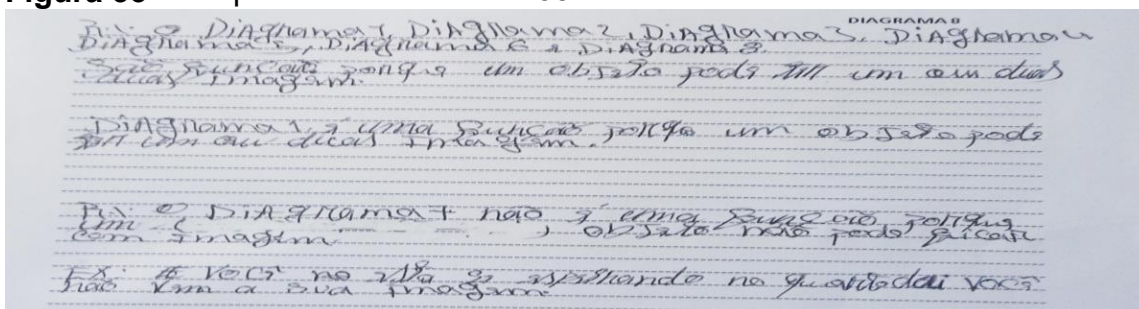 DIAGRAMA 8
R: O DiAgrama 1, DiAgrama 2, DiAgrama 3, DiAgrama 4
DiAgrama 5, DiAgrama 6 e DiAgrama 8
São função porque um objeto pode ter um ou duas
imagem.
DiAgrama 1, é uma função porque um objeto pode
ter um ou duas imagem.
R: O DiAgrama 7 não é uma função porque
um objeto não pode ficar
com imagem
EX: você no espelhando no quando dai você
não tem a sua imagem